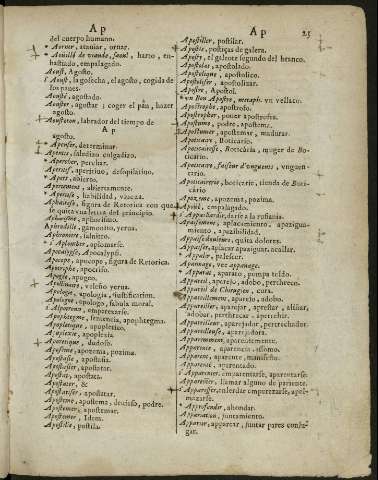 Ap
del cuerpo humano.
Aorner, ataviar, ornar.
Aouillé de viande, saoul, harto, en-
hastiado, empalagado.
Aoust, Agosto.
l'Aoust, la gosecha, el agosto, cogida de
los panes.
Aousté, agostado.
Aouster, agostar i coger el pan, hazer
agosto.
Aousteron, labrador del tiempo de
Ap
agosto.
Apenser, determinar.
Apentis, saledizo colgadizo.
Aperitif, aperitivo, desopilativo.
Apert, abierto.
Apertement, abiertamente.
Apertise, habilidad, viveza.
Aphairese, figura de Retorica con que
se quita vna letra del principio.
Aphorisme, aphorismo.
Aphrodille, gamonito, yerua.
Aphronitre, salnitro.
s'Aplomber, aplomarse.
Apocalypse, Apocalypsi.
Apocope, apocope, figura de Retorica.
Apocryphe, apocrifo.
Apogée, apogeo.
Apollinaire, veleño yerua.
Apologie, apologia, iustificacion.
Apologue, apologo, fabula moral.
Apophtegme, sentencia, apophtegma.
Apoplectique, apoplctico.
Apoplexie, apoplexia.
Aporetique, dudoso.
Aposeme, apozema, pozima.
Apostasie, apostasia.
Apostasier, apostatar.
Apostat, apostata.
Apostater, &
Apostatiser, apostatar.
Aposteme, apostema, decisso, podre.
Apostemer, apostemar.
Apostumer, Idem.
Apostille, postila.
Ap 25
Apostiller, postilar.
Apostis, postiças de galera.
Aposty, el galeote segundo del branco.
Apostolat, apostolado.
Apostolique, apostolico.
Apostoliser, apostolizar.
Apostre, Apostol.
vn Bon Apostre, metaph. vn vellaco.
Apostrophe, apostrofo.
Apostropher, poner apostrofo.
Apostume, podre, apostema.
Apostumer, apostemar, madurar.
Apoticaire, Boticario.
Apoticairesse, Boticaria, muger de Bo-
ticario.
Apoticaire, faiseur d'onguens, vnguen-
tario.
Apoticairerie, boticario, tienda de Boti-
cario
Apozeme, apozema, pozima.
empalagado.
s'Appaillardir, darse a la rufiania.
Appaisement, aplacamiento, apazigua-
miento, apazibilidad.
Appaisedouleurs, quita dolores.
Appaiser, aplacar apaziguar, acallar.
Appalir, palescer.
Appanage, vee appanage.
Appareil, aparejo, adobo, perthrecho.
Appareil de Chirurgien, cura.
Appareillement, aparejo, adobo.
Appareiller, aparejar, aprestar, aliñar,
adobar, perthrecar, apercebir.
Appareilleur, aparejador, pertrechador.
Appareilleuse, aparejadora.
Apparemment, aparentemente.
Apparence, aparencia, assomo.
Apparent, aparente, manifiesto.
Apparenté, aparentado.
s'Apparenter, emparentarse, aparentarse.
Appariteur, llamar alguno de pariente.
s'Apparesser, enlerdar emperezarse, apel-
mazarse.
Approfonder, ahondar.
Apparation, juntamiento.
Apparier, aparear, juntar pares conju-
gar.